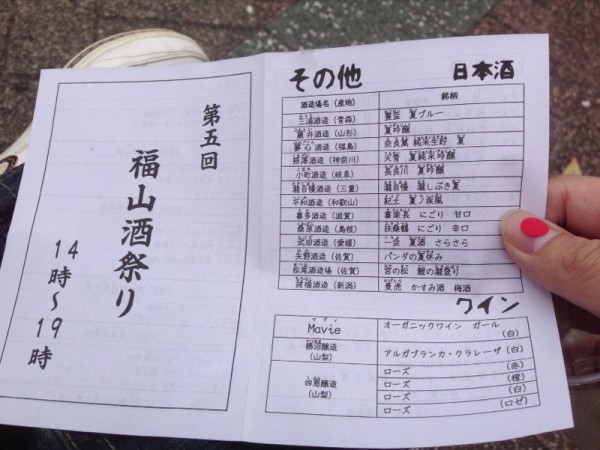 第五回
福山酒祭り
14時～19時
その他 日本酒
酒造場名（産地） 銘柄
三浦酒造（青森） 豊盃 夏ブルー
酒造（山形） 夏吟醸
夢心酒造（福島） 奈良萬 純米生酢 夏
熊澤酒造（神奈川） 天青 夏純米吟醸
小町酒造（岐阜） 長良川 夏吟醸
瀧自慢酒造（三重） 瀧自慢 瀧しぶき夏
平和酒造（和歌山） 紀土 夏ノ疾風
喜多酒造（滋賀） 喜楽長 にごり 甘口
桑原酒造（島根） 扶桑鶴 にごり 辛口
武田酒造（愛媛） 夏酒 さらさら
矢野酒造（佐賀） パンダの夏休み
松尾酒造場（佐賀） 宮の松
諸橋酒造（新潟） 景虎 かすみ酒 梅酒
ワイン
Mavie オーガニックワイン ガール（白）
勝沼醸造（山梨） アルガブランカ・クラレーザ（白）
四恩醸造（山梨） ローズ（赤）
ローズ（橙）
ローズ（白）
ローズ（ロゼ）